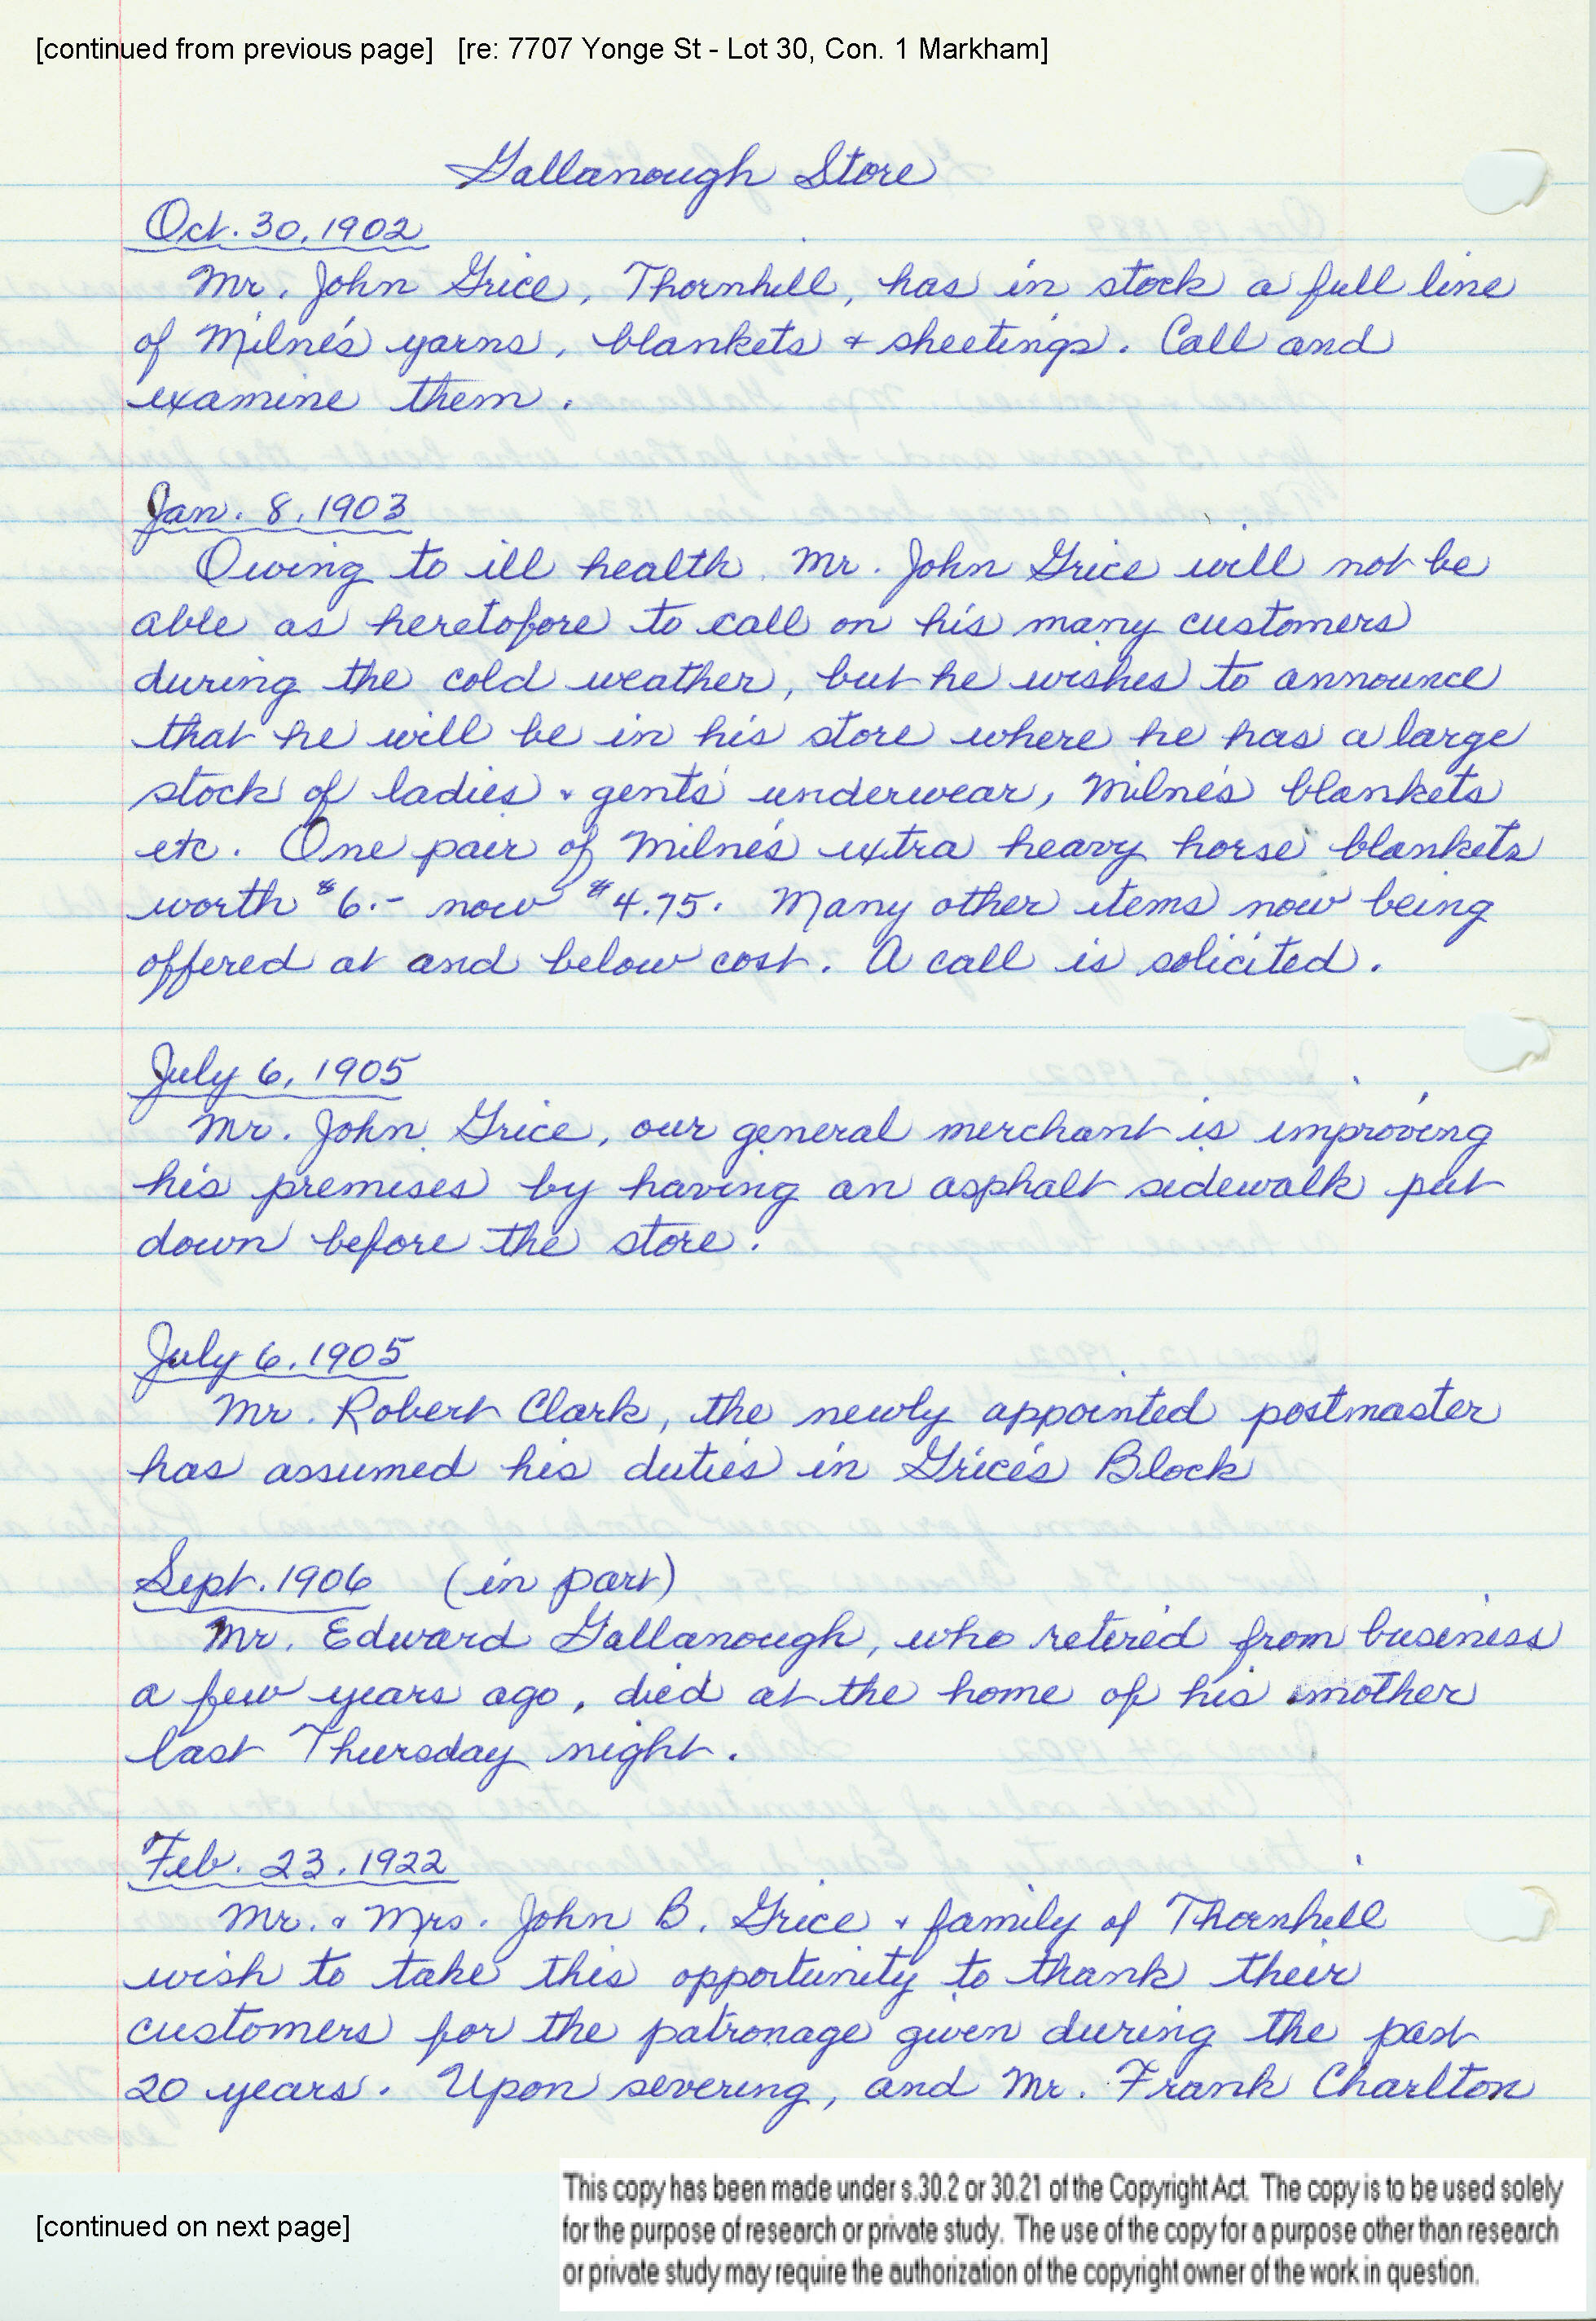 [continued from previous page] [re: 7707 Yonge St - Lot 30, Con. 1 Markham]
Gallanough Store
Oct. 30, 1902
Mr. John Grice, Thornhill, has in stock a full line
of Milne's yarns, blankets + sheetings. Call and
examine them.
Jan. 8, 1903
Owing to ill health, Mr. John Grice will not be
able as heretofore to call on his many customers
during the cold weather, but he wishes to announce
that he will be in his store where he has a large
stock of ladies + gents' underwear, Milne's blankets
etc. One pair of Milne's extra heavy horse blankets
worth $6.- now $4.75. Many other items now being
offered at and below cost. A call is solicited.
July 6, 1905
Mr. John Grice, our general merchant is improving
his premises by having an asphalt sidewalk put
down before the store.
July 6, 1905
Mr. Robert Clark, the newly appointed postmaster
has assumed his duties in Grice's Block
Sept. 1906 (in part)
Mr. Edward Gallanough, who retired from business
a few years ago, died at the home of his mother
last Thursday night.
Feb. 23, 1922
Mr. + Mrs. John B. Grice + family of Thornhill
wish to take this opportunity to thank their
customers for the patronage given during the past
20 years. Upon severing, and Mr. Frank Charlton
[continued on next page]
This copy has been made under s.30.2 or 30.21 of the Copyright Act. The copy is to be used solely
for the purpose of research or private study. The use of the copy for a purpose other than research
or private study may require the authorization of the copyright owner of the work in question.